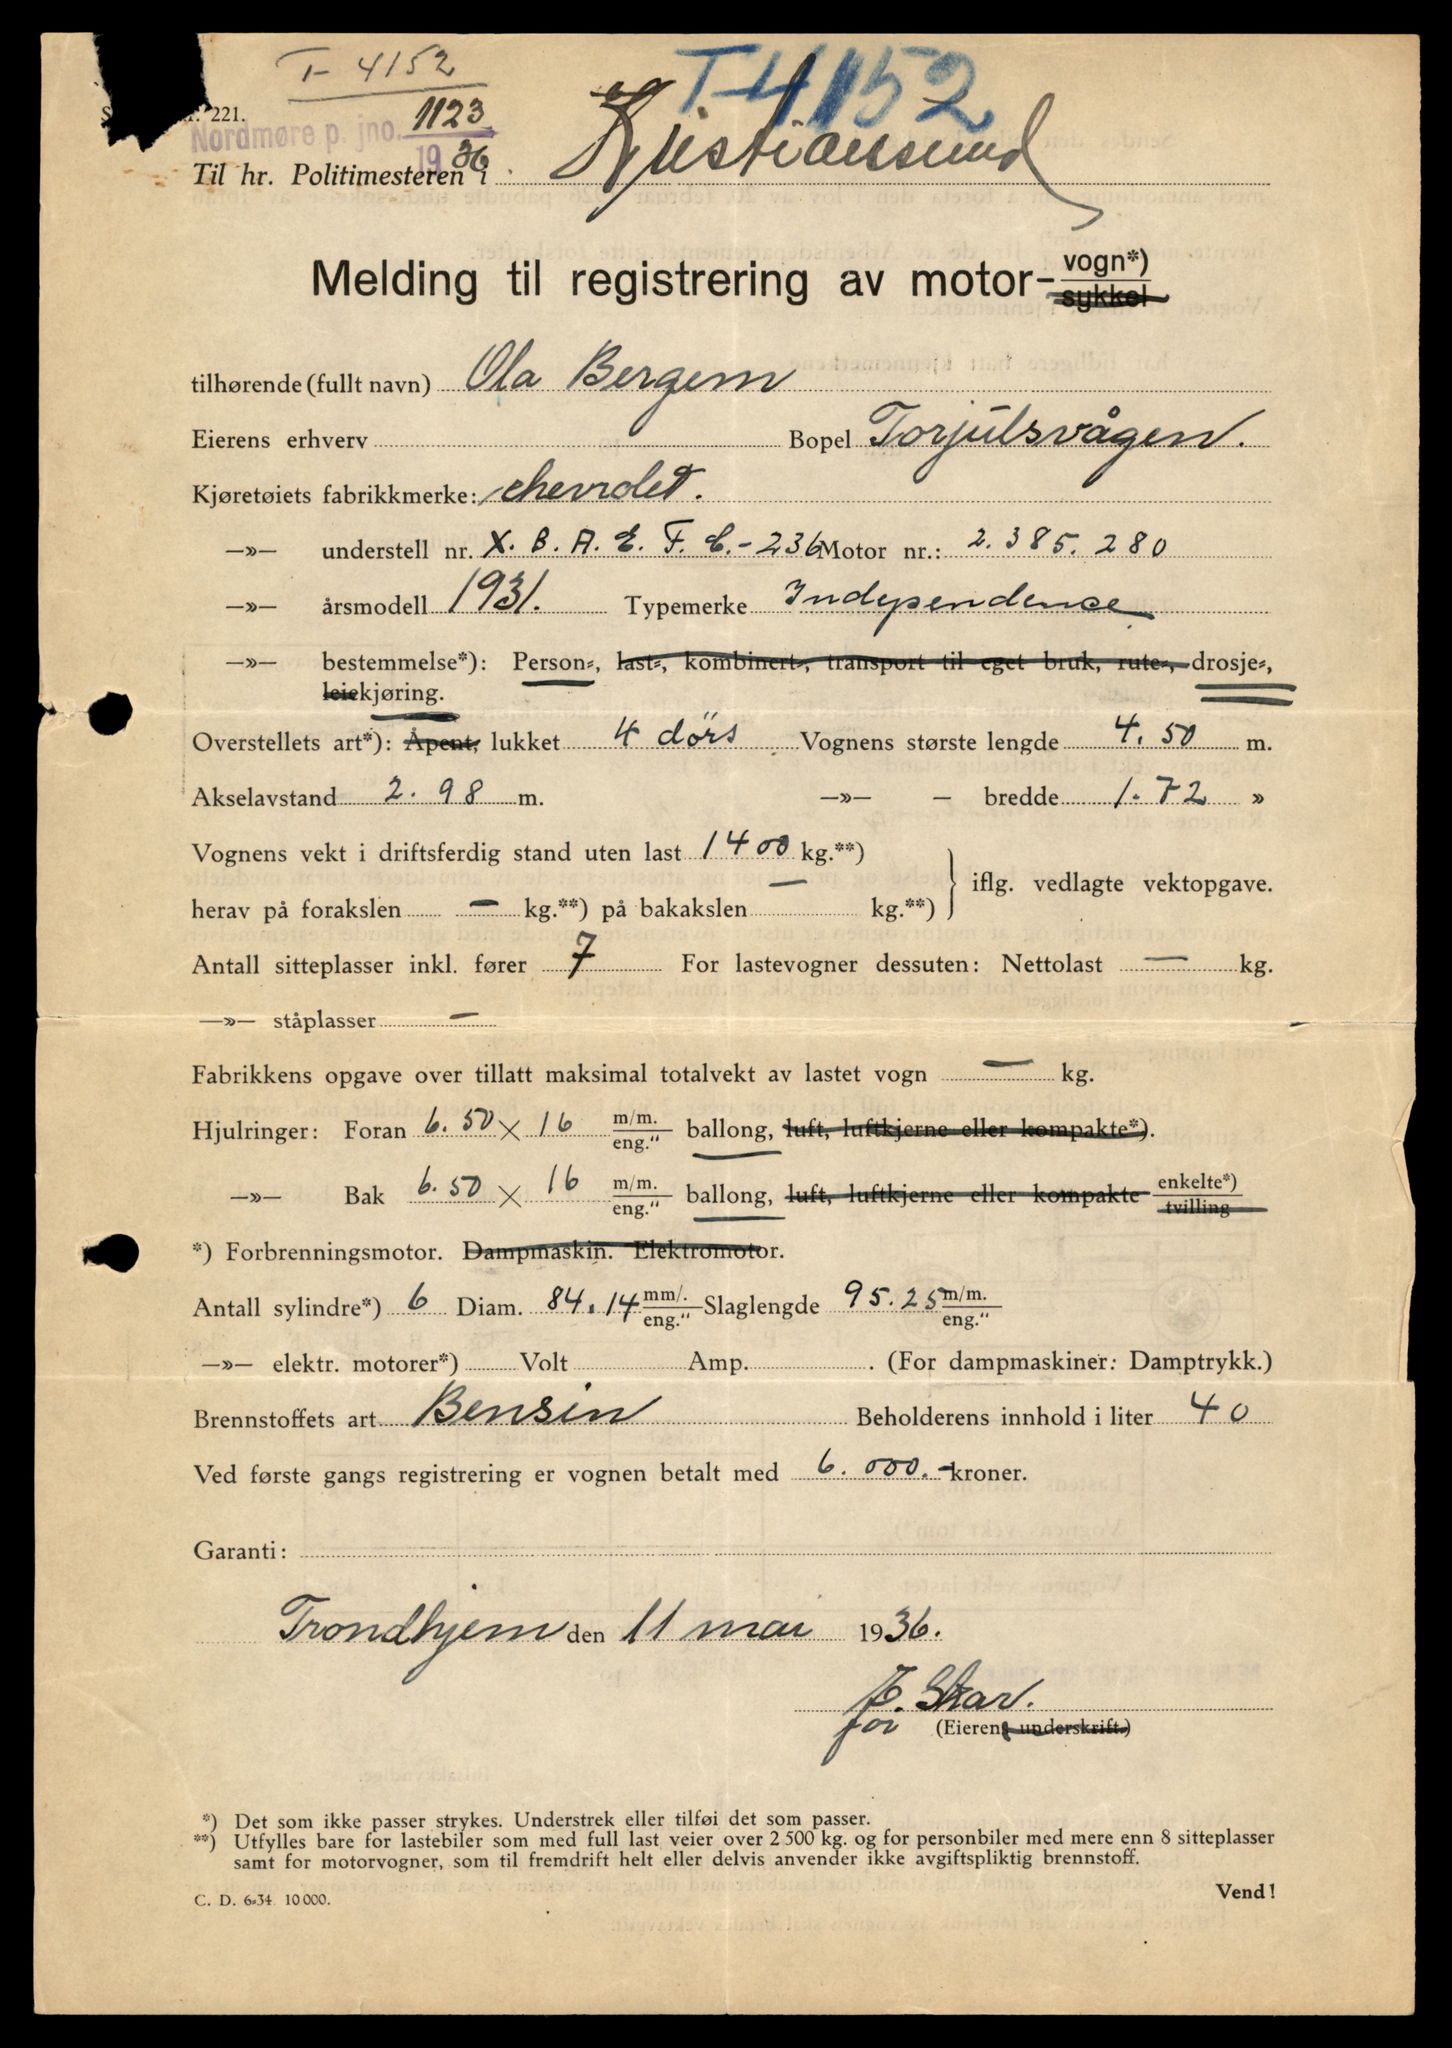 T-4152
T-4152
r. 221.
Nordmøre p. jno. 1123
1936.
Til hr. Politimesteren i Kristiansund
Melding til registrering av motor- vogn*)
sykkel
tilhørende (fullt navn) Ola Bergem
Eierens erhverv Bopel Torjulsvågen.
Kjøretøiets fabrikkmerke: chevrolet.
—»— understell nr. X. B. A. E. F. C. - 236 Motor nr.: 2.385.280
—»— årsmodell 1931. Typemerke Independence
—»— bestemmelse*): Person-, last-, kombinert-, transport til eget bruk, rute-, drosje-,
leiekjøring.
Overstellets art*): Åpent, lukket 4 dörs Vognens største lengde 4.50 m.
Akselavstand 2.98 m. —»— — bredde 1.72 »
Vognens vekt i driftsferdig stand uten last 1400 kg.**)
iflg. vedlagte vektopgave.
herav på forakslen — kg.**) på bakakslen — kg.**)
Antall sitteplasser inkl. fører 7 For lastevogner dessuten: Nettolast — kg.
—»— ståplasser —
Fabrikkens opgave over tillatt maksimal totalvekt av lastet vogn — kg.
Hjulringer: Foran 6.50 × 16 m/m. eng." ballong, luft, luftkjerne eller kompakte*).
—»— Bak 6.50 × 16 m/m. eng." ballong, luft, luftkjerne eller kompakte enkelte*) tvilling
*) Forbrenningsmotor. Dampmaskin. Elektromotor.
Antall sylindre*) 6 Diam. 84.14 mm/. eng." Slaglengde 95.25 m/m. eng."
—»— elektr. motorer*) Volt Amp. . (For dampmaskiner: Damptrykk.)
Brennstoffets art Bensin Beholderens innhold i liter 40
Ved første gangs registrering er vognen betalt med 6.000.- kroner.
Garanti:
Trondhjem den 11 mai 1936.
E. Skar.
for (Eierens underskrift.)
*) Det som ikke passer strykes. Understrek eller tilføi det som passer.
**) Utfylles bare for lastebiler som med full last veier over 2 500 kg. og for personbiler med mere enn 8 sitteplasser
samt for motorvogner, som til fremdrift helt eller delvis anvender ikke avgiftspliktig brennstoff.
C. D. 6-34. 10 000. Vend!